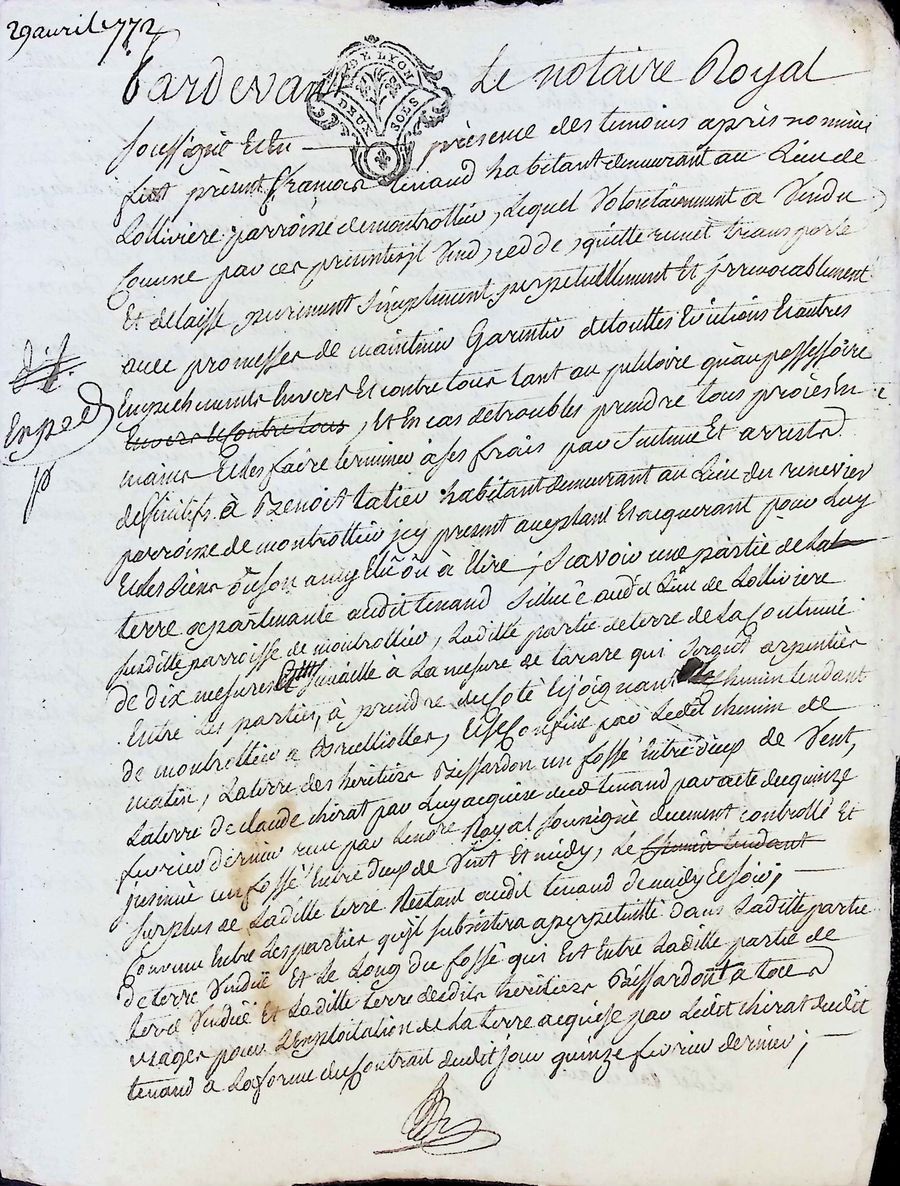 29 avril 1772
Pardevant Le notaire Royal
DE LYON
DEUX SOLS
soussigné et en présence des temoins après nommés
fut présent François tenaud habitant demeurant au Lieu de
Lollivière parroisse de montrottier, Lequel volontairement a vendu
Comme par ces presentes il vend, cedde, quitte remet transporte
Et delaisse purement simplement perpetuellement Et jrrevocablement
avec promesses de maintenir Garentir de touttes Evictions Et autres
Empechements Envers Et contre tous tant au petitoire qu'au possessoire
Envers Et Contre tous, Et En cas de troubles prendre tous procés En
mains Et Les faire terminer à ses frais par Sentence Et arrests
deffinitifs à Benoit habitant demeurant au Lieu du
parroisse de montrottier jcy present acceptant Et acquerant pour Luy
Et Les Siens ou son amy Elû ou à Elire; Scavoir une partie de La
terre apartenante audit tenaud Situèe audit Lieu de Lollivière
susditte parroisse de montrottier, Laditte partie de terre de La Contenüe
de dix mesures à La mesure de tarare qui Seront arpentées
Entre Les parties, à prendre du Coté Et joignant chemin tendant
de montrottier a, Et Se Confine par Ledit chemin de
matin, La terre des heritiers Bissardon un fossé Entre deux de Vent,
La terre de Claude chirat par Luy acquise dudit tenaud par acte du quinze
fevrier dernier reçu par Le notaire Royal soussigné duement controllé Et
jnsinué un fossé Entre deux de Vent Et midy, Le chemin tendant
surplus de Laditte terre Restant audit tenaud de midy Et soir;
Convenu Entre Les parties qu'il subsistera a perpetuitté dans Laditte partie
de terre Vendüe Et Le Long du fossé qui Est Entre Laditte partie de
terre Vendüe Et Laditte terre desdits heritiers Bissardon a tous
usages pour L'exploitation de La terre acquise par Ledit chirat dudit
tenaud a La forme du Contrait dudit jour quinze fevrier dernier;